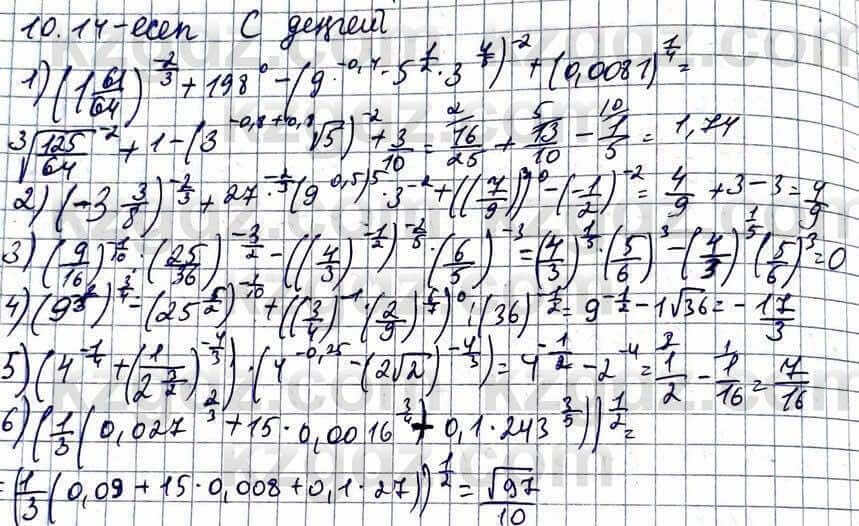 10.14-есеп С деңгей
1) (1 61/64)^(-2/3) + 198^0 - (9^(-0,4) · 5^(1/2) · 3^(4/5))^(-2) + (0,0081)^(1/4) =
∛(125/64)^(-2) + 1 - (3^(-0,8+0,8) √5)^(-2) + 3/10 = 16/25 + 13/10 - 1/5 = 1,74
2) (-3 3/8)^(-2/3) + 27^(-2/3) · (9^(0,5))^5 · 3^(-2) + ((7/9)^3)^0 - (-1/2)^(-2) = 4/9 + 3 - 3 = 4/9
3) (9/16)^(-1/10) · (25/36)^(-3/2) - ((4/3)^(-1/2))^(-2/5) · (6/5)^(-3) = (4/3)^(1/5) · (5/6)^3 - (4/3)^(1/5) (5/6)^3 = 0
5) (4^(-1/4) + (1/2^(3/2))^(-4/3)) · (4^(-0,25) - (2√2)^(-4/3)) = 4^(-1/2) - 2^(-4) = 1/2 - 1/16 = 7/16
6) (1/3 (0,027^(2/3) + 15 · 0,0016^(3/4) + 0,1 · 243^(3/5)))^(1/2) =
= (1/3 (0,09 + 15 · 0,008 + 0,1 · 27))^(1/2) = √97/10
kzgdz.com